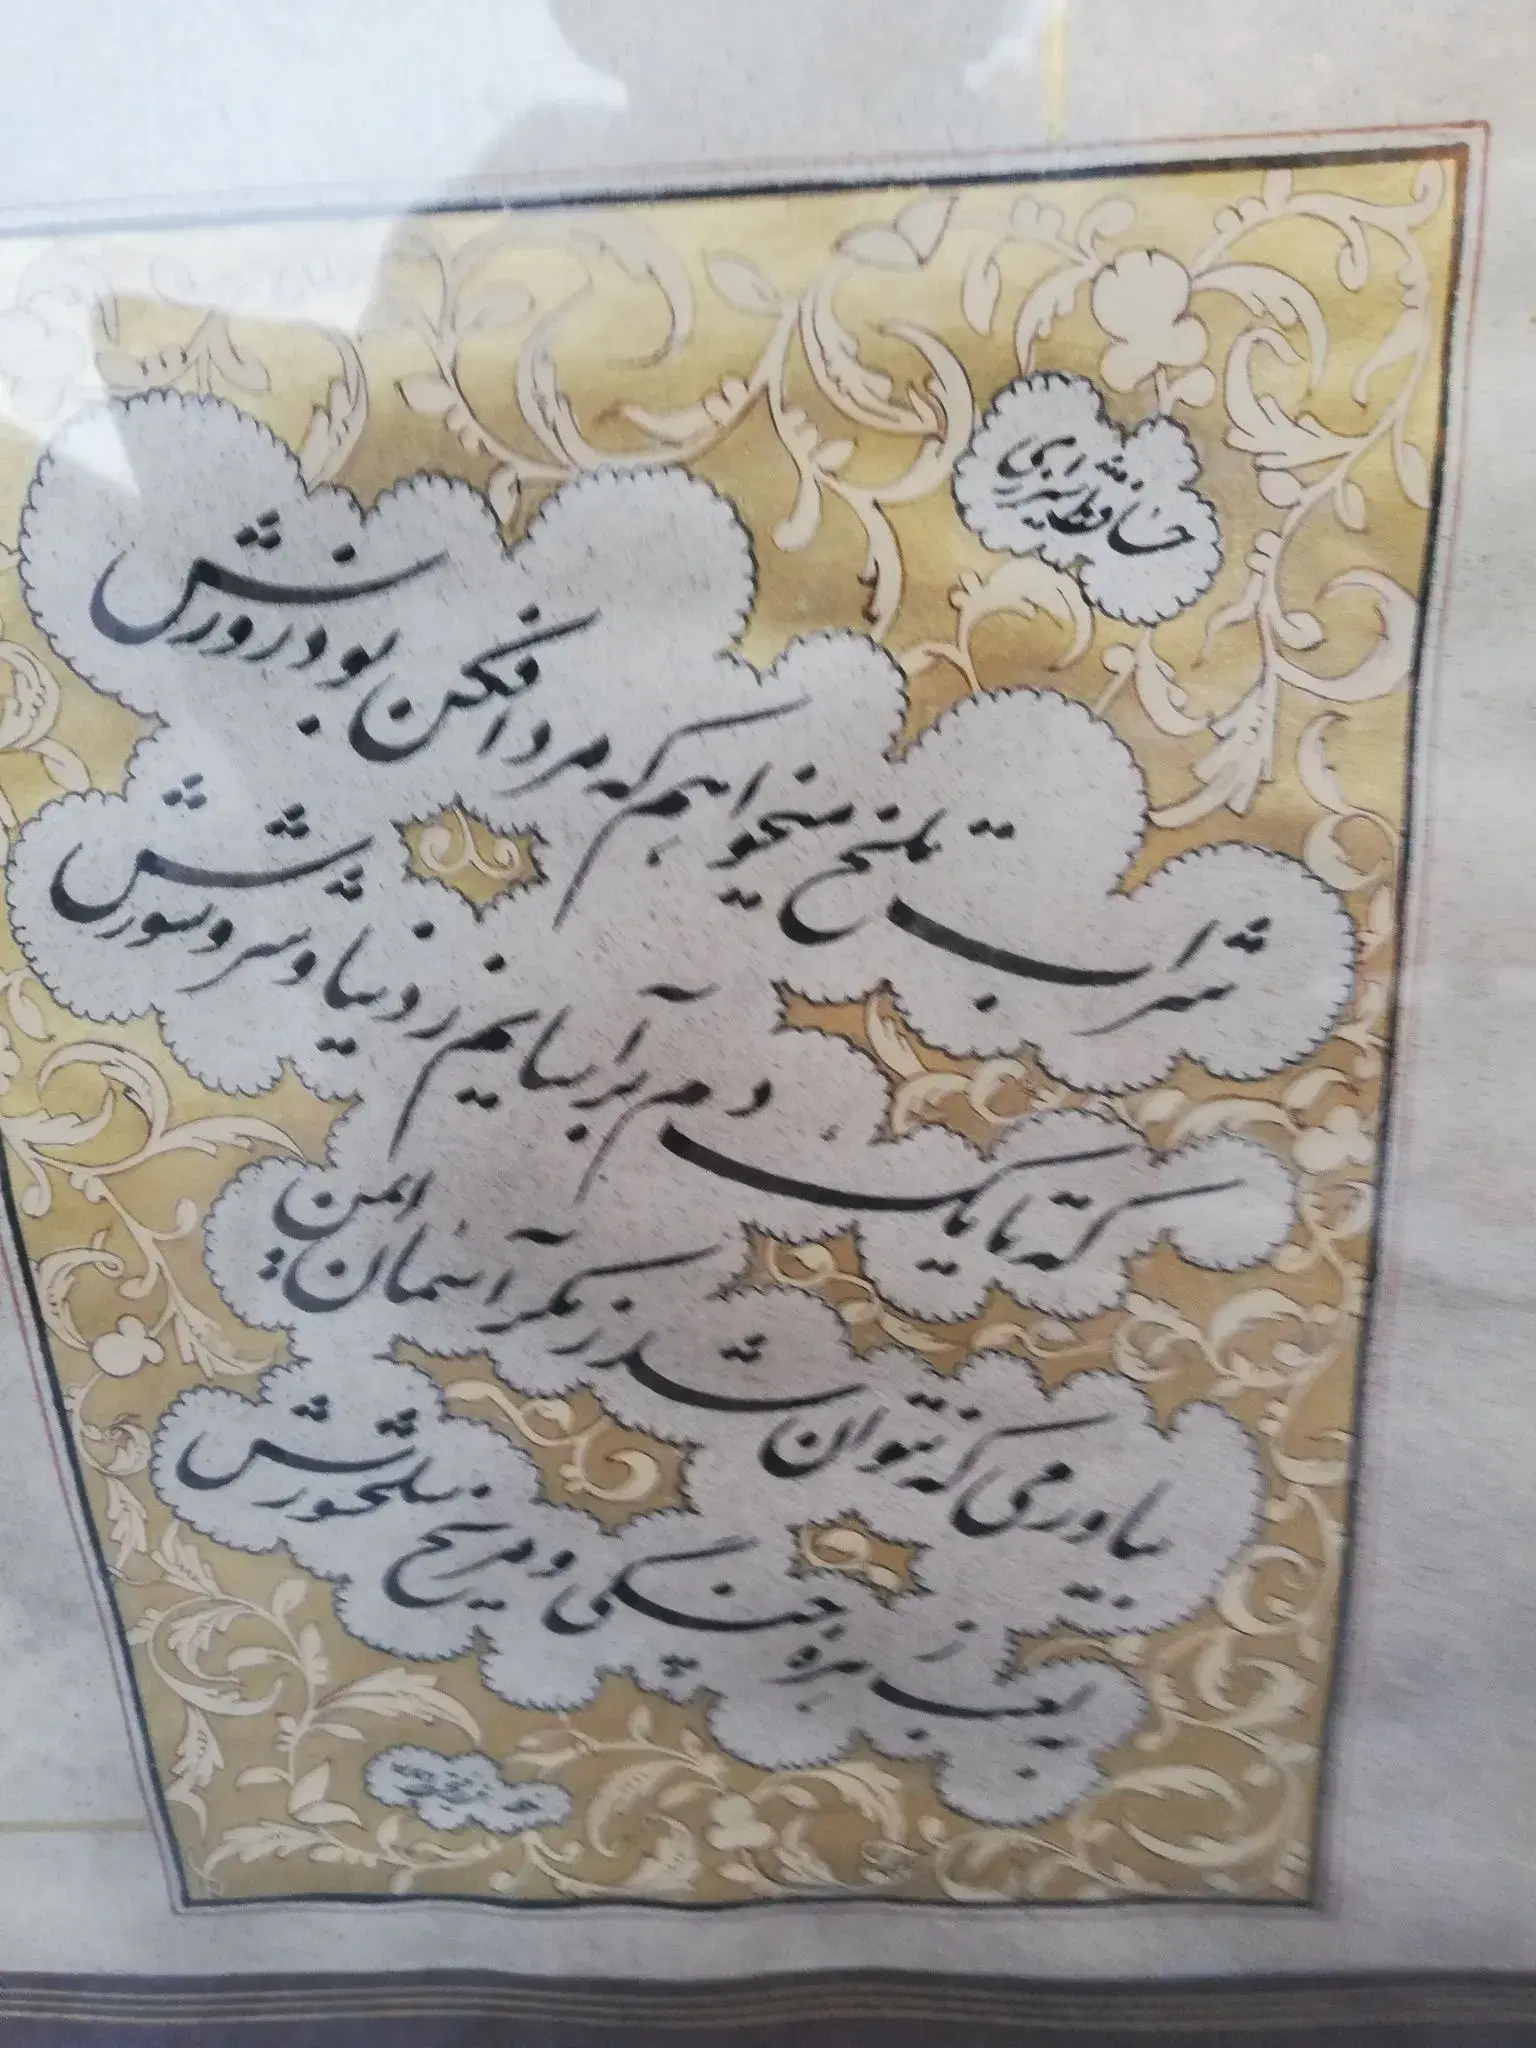 حافظ شیرازی
شراب تلخ میخواهم که مرد افکن بود زورش
که تا یک دم برآسایم ز دنیا و شر و شورش
بیاور می که نتوان شد ز مکر آسمان ایمن
بلعب زهره چنگی و مریخ سلحشورش